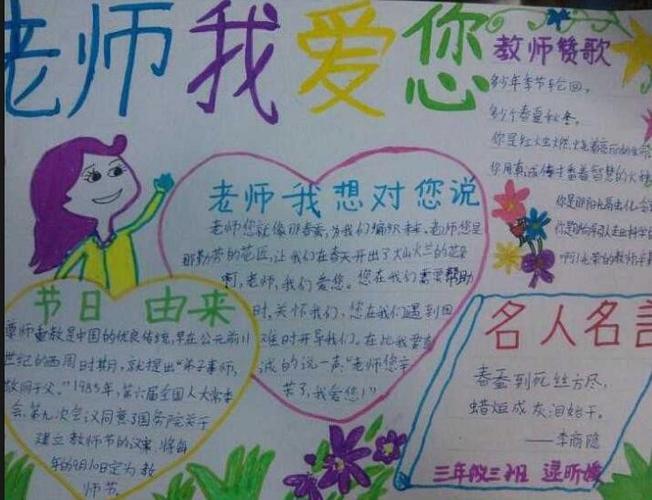 老师我爱您
教师赞歌
多少年季节轮回，
多少个春夏秋冬，
你是红烛燃烧着
你用真诚传播着智慧的火种
老师我想对您说
老师您就像那春蚕，为我们编织未来。老师您是
那勤劳的花匠，让我们在春天开出了
啊，老师，我们爱您。您在我们需要帮助
时，关怀我们，您在我们遇到困
难时开导我们。在此我要真
诚的说一声："老师您辛
苦了，我会您！"
节日 由来
尊师重教是中国的优良传统，早在公元前11
世纪的西周时期，就提出"弟子事师，
敬同于父。"1985年，第六届全国人大常委
会第九次会议同意了国务院关于
建立教师节的议案，将每
年的9月10日定为教
师节。
名人名言
春蚕到死丝方尽，
蜡烛成灰泪始干。
——李商隐
三年级三班